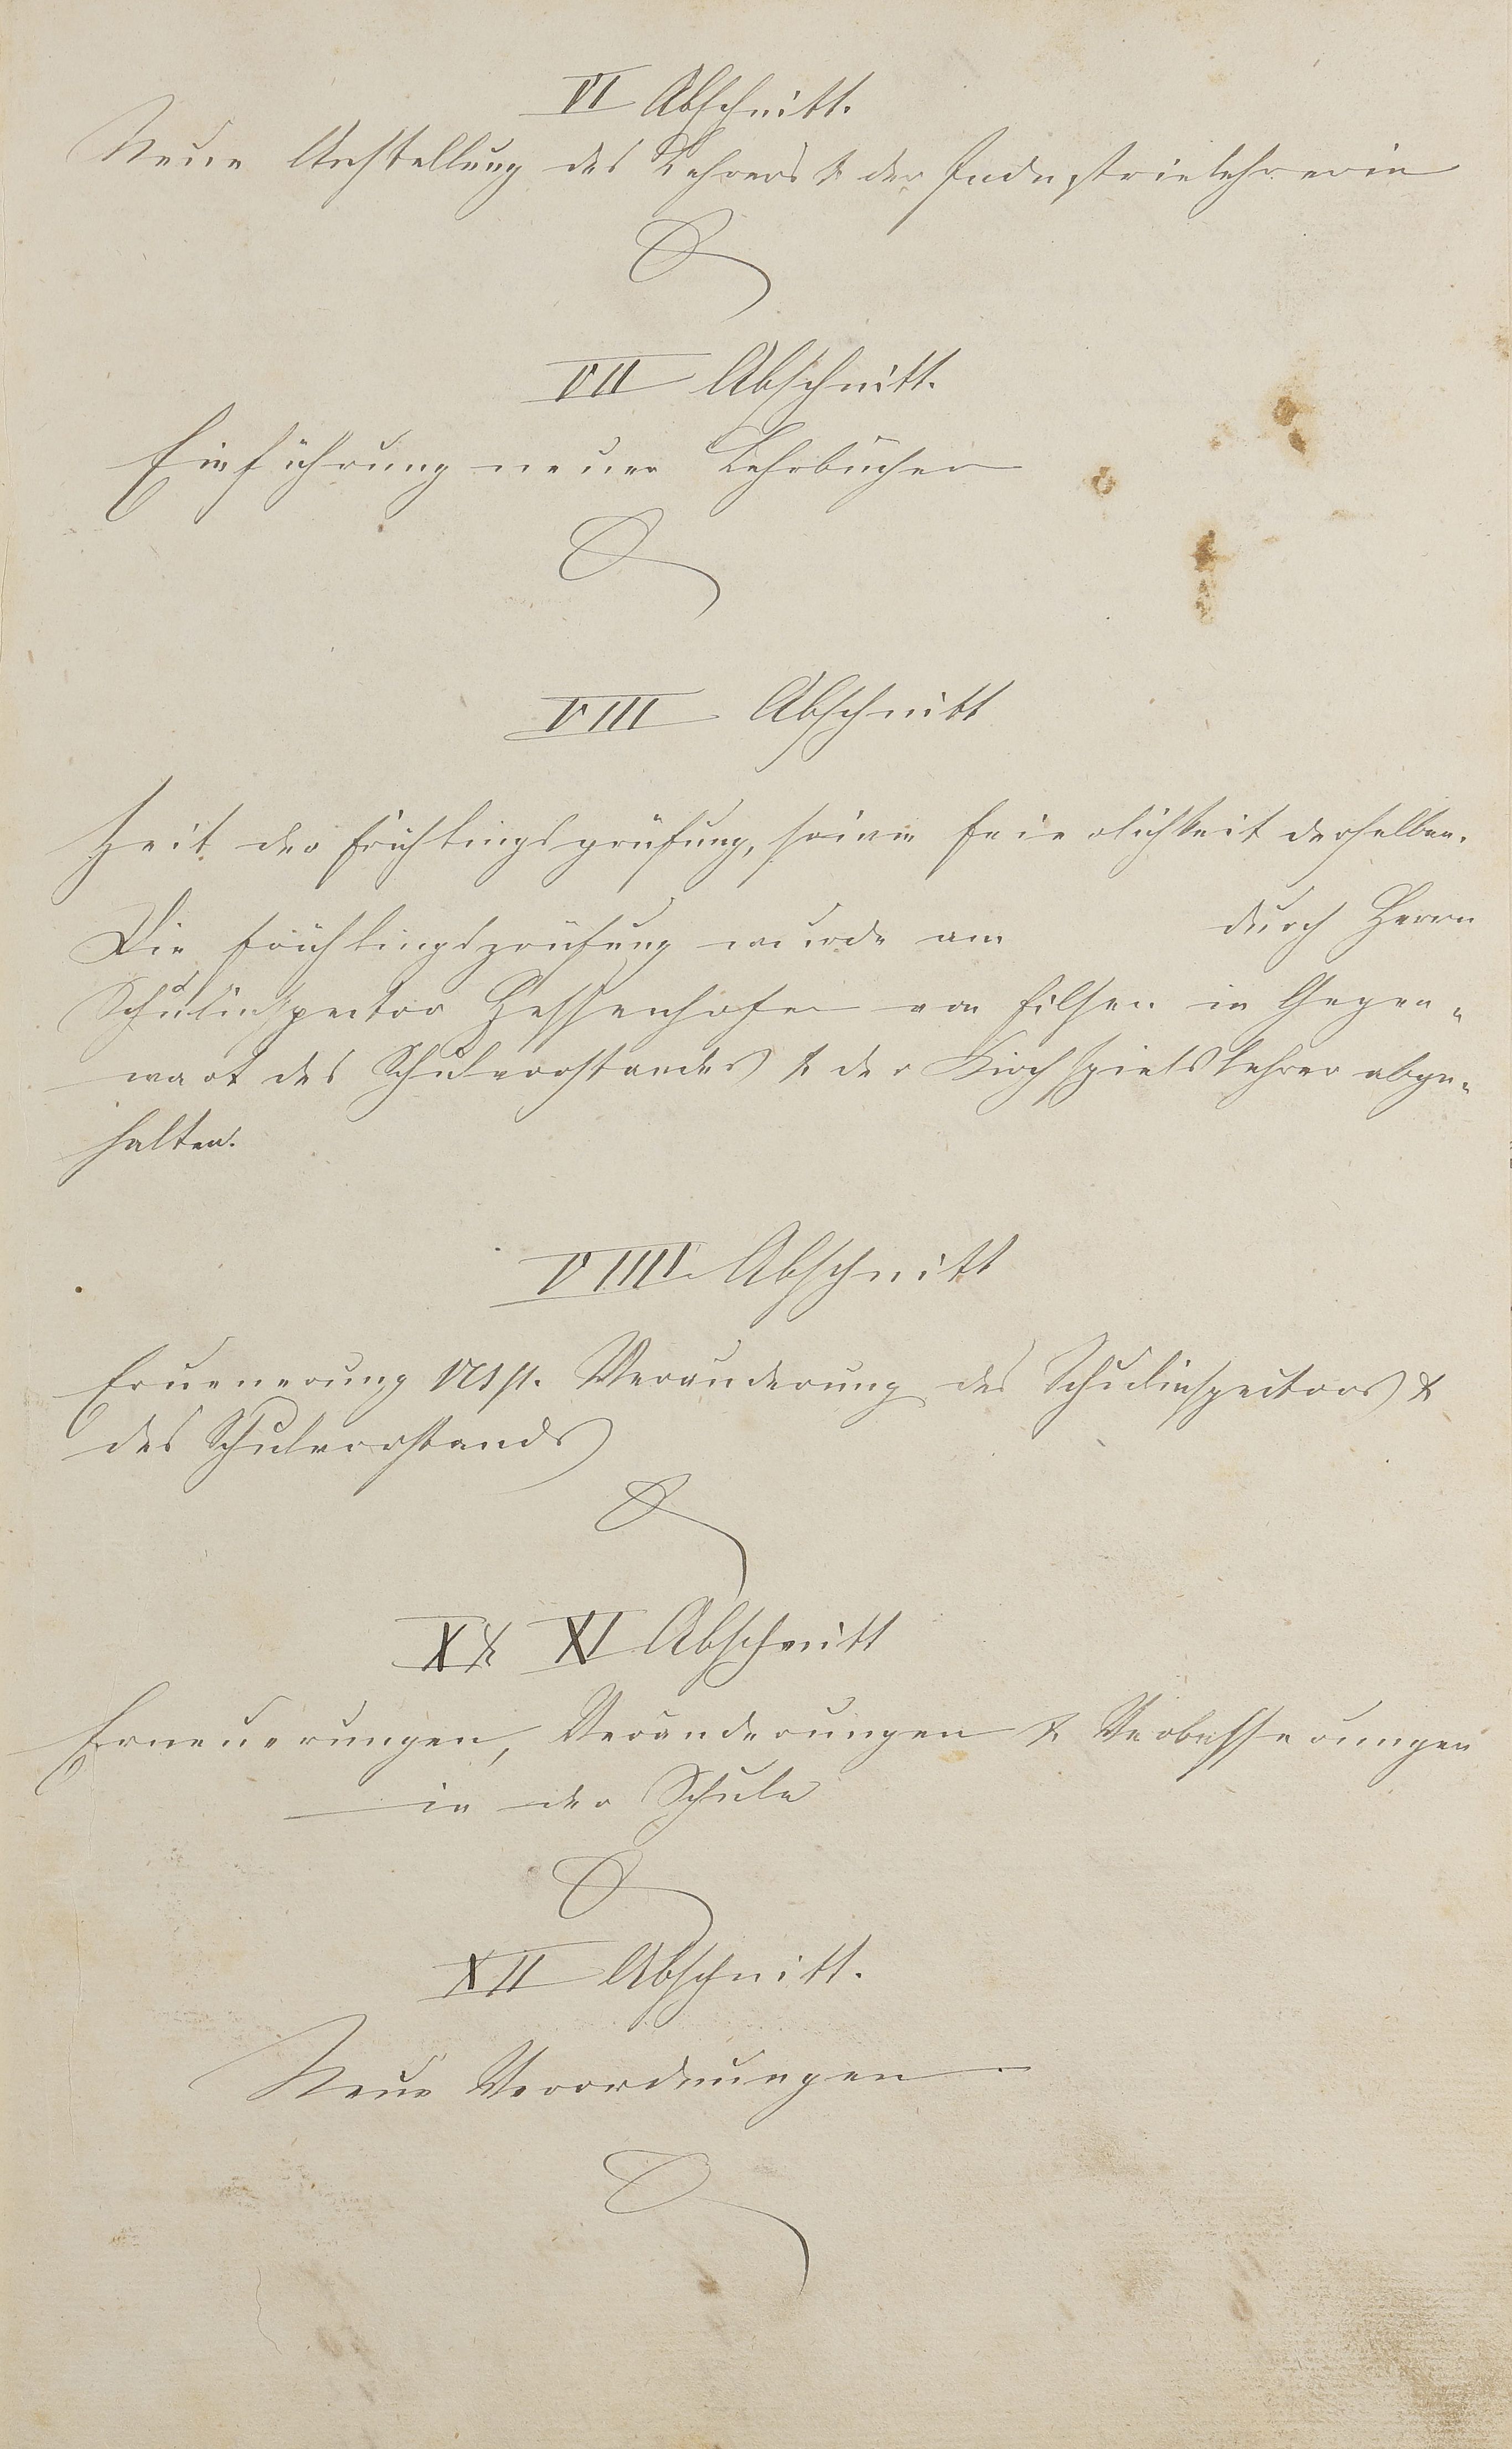 VI Abschnitt.
Neue Anstellung des Lehrers & der Industrielehrerin
VII Abschnitt.
Einführung neuer Lehrbücher
VIII Abschnitt
Zeit der Frühlingsprüfung, sowie Feierlichkeit derselben.
Die Frühlingsprüfung wurde am durch Herrn
Schulinspector Hessenhofer von Filsen in Gegen-
wart des Schulvorstandes & der Kirchspielslehrer abge-
halten.
VIIII Abschnitt
Erneuerung resp. Veränderung des Schulinspectors &
des Schulvorstands
X & XI Abschnitt
Erneuerungen, Veränderungen & Verbesserungen
in der Schule
XII Abschnitt.
Neue Verordnungen